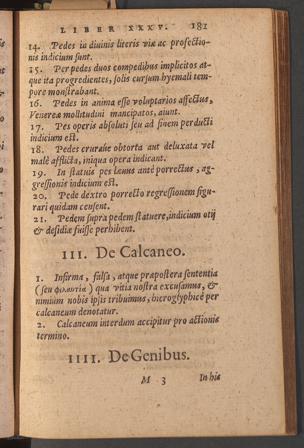 LIBER XXXV. 181
14. Pedes in diuinis literis viæ ac profectio-
nis indicium sunt.
15. Per pedes duos compedibus implicitos at-
que ita progredientes, solis cursum hyemali tem-
pore monstrabant.
16. Pedes in anima esse voluptarios affectus,
Venereæ mollitudini mancipatos, aiunt.
17. Pes operis absoluti seu ad finem perducti
indicium est.
18. Pedes crurave obtorta aut deluxata vel
malè afflicta, iniqua opera indicant.
19. In statuis pes læuus antè porrectus, ag-
gressionis indicium est.
20. Pede dextro porrecto regressionem figu-
rari quidam censent.
21. Pedem supra pedem statuere, indicium otij
& desidiæ fuisse perhibent.
III. De Calcaneo.
1. Infirma, falsa, atque præpostera sententia
(seu φιλαυτία) qua vitia nostra excusamus, &
nimium nobis ipsis tribuimus, hieroglyphicè per
calcaneum denotatur.
2. Calcaneum interdum accipitur pro actionis
termino.
IIII. De Genibus.
M 3 In his